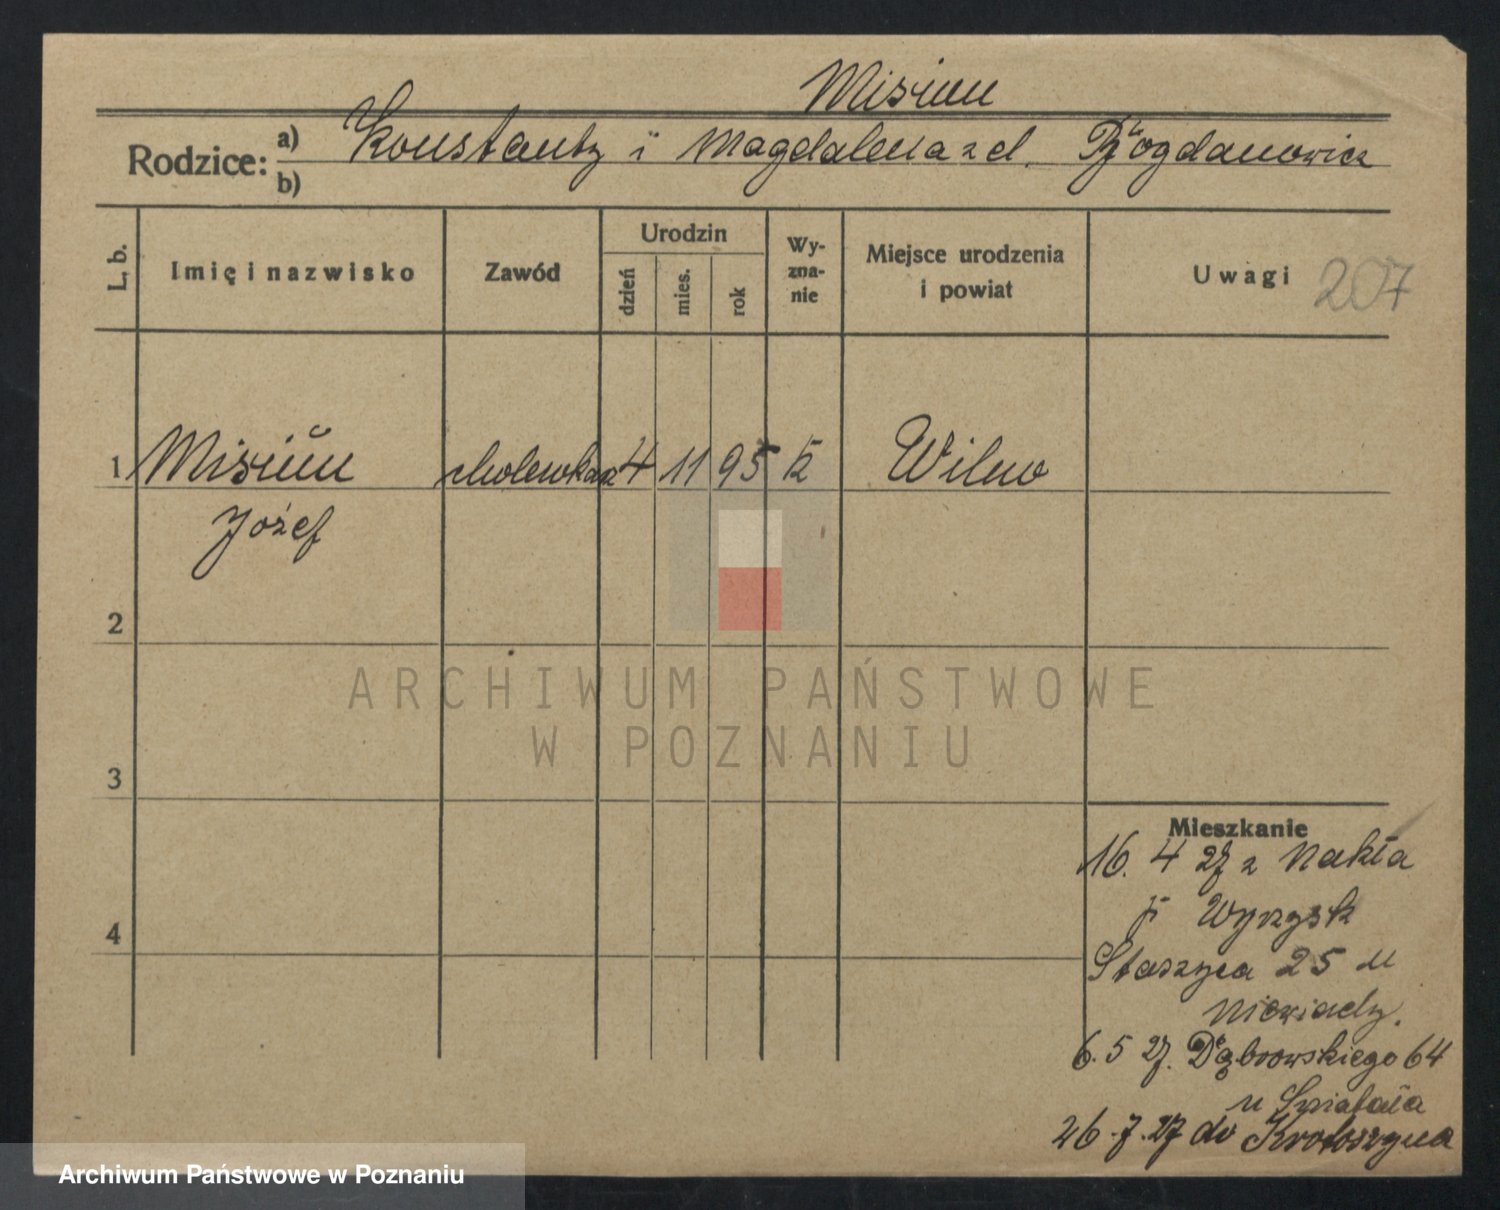 Misiun
Rodzice: a) Konstanty i Magdalena zd. Bogdanowicz
b)
L. b.
Imię i nazwisko
Zawód
Urodzin
dzień
mies.
rok
Wy-
zna-
nie
Miejsce urodzenia
i powiat
Uwagi 207
1 Misiun cholewkarz 4 11 95 k Wilno
Józef
2
3
4
Mieszkanie
16. 4 27 z Nakła
p Wyrzysk
Staszyca 25 u
Niewiady.
6. 5 27. Dąbrowskiego 64
u
26.7.27 do Krotoszyna
ARCHIWUM PAŃSTWOWE
W POZNANIU
Archiwum Państwowe w Poznaniu